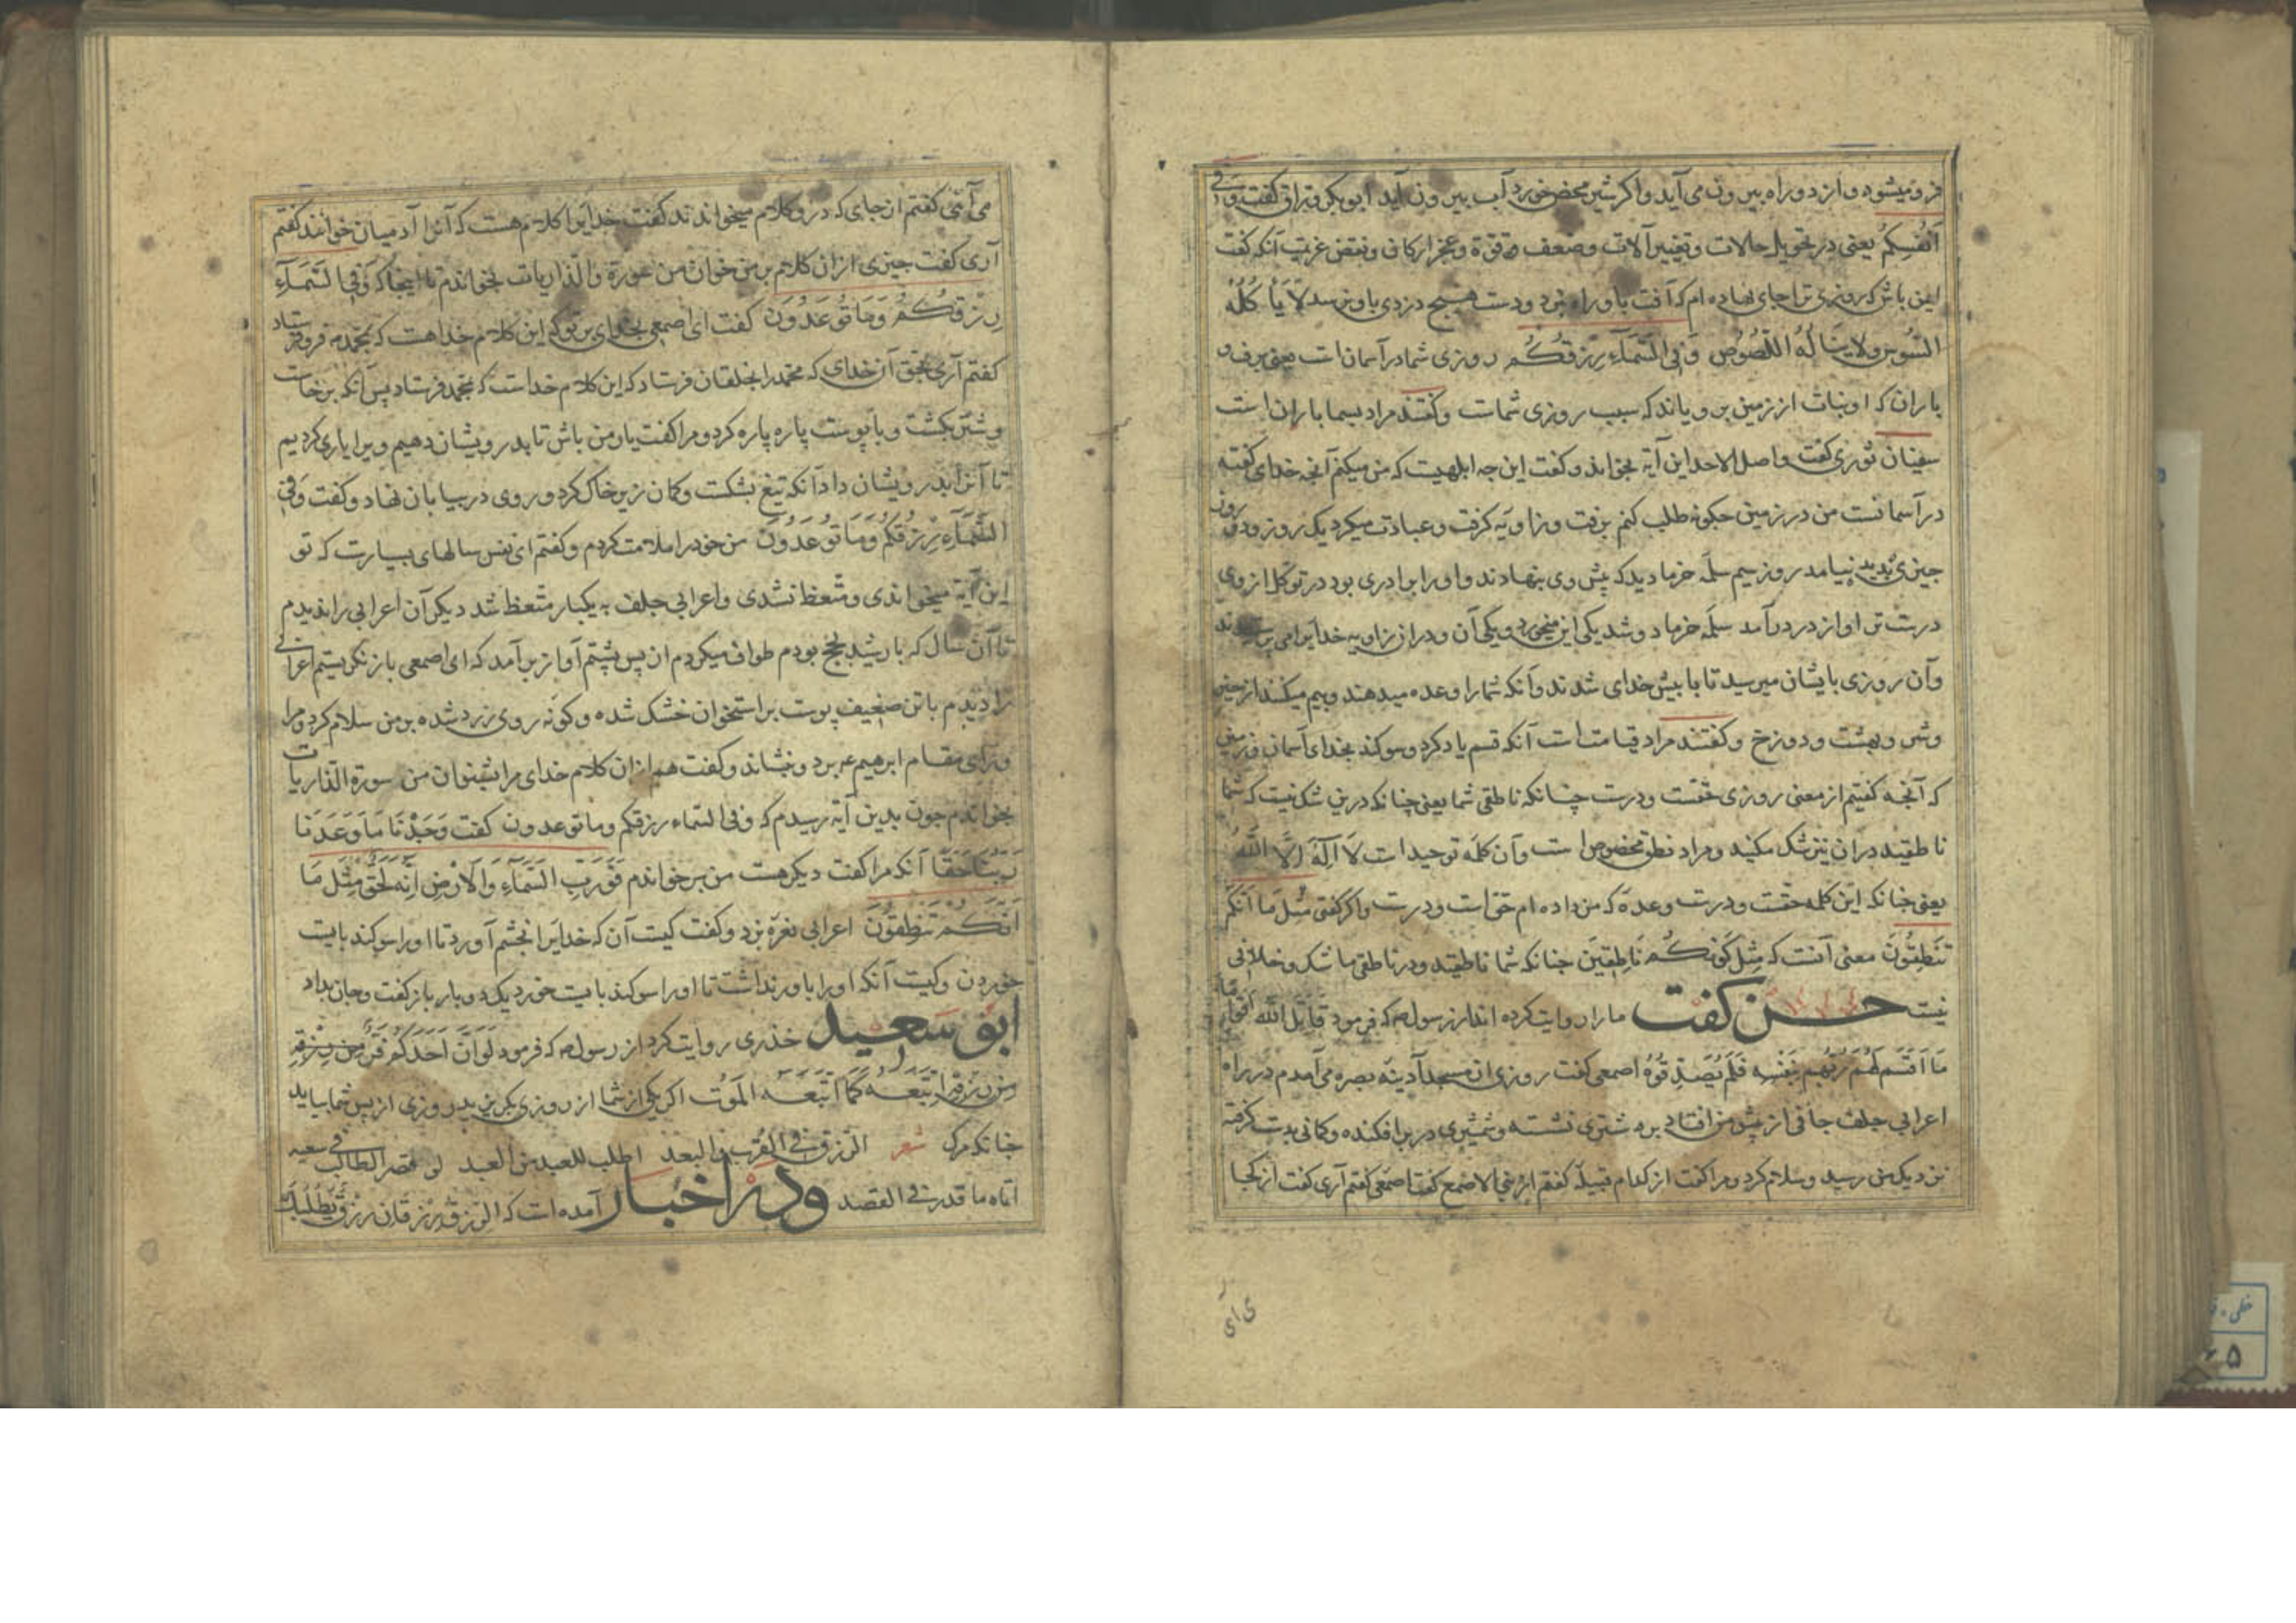 فرو میشود و از دو راه بیرون می آید و اکر شیر محض خورد آب بیرون آید ابو بکر وراق کفت وفی
اَنفُسِکُم یعنی در تحویل حالات و تغییر آلات و ضعف قوة و عجز ارکان و نقض عزیمت آنکه کفت
ایمن باش که روزی ترا جای نهاده ام که آفت باو راه نبرد و دست هیچ دزدی باو نرسد لا یأکله
السُّوس ولا یناله اللصُوص وَفِی السَّمَآءِ رِزقُکُم روزی شما در آسمان است یعنی برف و
باران که او نبات از زمین برویاند که سبب روزی شماست و کفتند مراد بسما باران است
سفیان ثوری کفت واصل الاحدب این آیه بخواند و کفت این چه ابلهیست که من میکنم آنچه خدای کفته
در آسمانست من در زمین جکونه طلب کنم برفت و زاویه کرفت و عبادت میکرد یک روز و دو روز
جیزی پدید نیامد روز سیم سلّه خرما دید که پیش وی بنهادند و او را برادری بود در توکل از وی
درست تر او از در درآمد سلّه خرما دو شد یکی این میخورد و یکی آن و در آن زاویه خدایرا می پرستیدند
وآن روزی بایشان میرسید تا با پیش خدای شدند وآنکه شما را وعده میدهند وبیم میکنند از خیر
وشر و بهشت و دوزخ و کفتند مراد قیامت است آنکه قسم یاد کرد و سوکند بخدای آسمان و زمین
که آنجه کفتیم از معنی روزی حقست ودرست چنانکه ناطقی شما یعنی چنانکه درین شک نیست که شما
ناطقید در آن نیز شک مکنید و مراد نطق مخصوص است وآن کلمه توحید است لَا اِلٰهَ اِلَّا اللّٰهُ
یعنی جنانکه این کلمه حقست ودرست وعده که من داده ام حق است ودرست واکر کفتی مثل مَا اَنَّکُم
تَنطِقُونَ معنی آنست که مِثل کَونِکُم نَاطِقینَ جنانکه شما ناطقید ودر ناطقی ما شک و خلافی
نیست حسن کفت ما را روایت کرده اند از رسول ص که فرمود قَاتَلَ اللّٰه اقوامًا
مَا اَقسَمَ لَهُم رَبُّهُم بِنَفسِه فَلَم یُصَدِّقُوُه اصمعی کفت روزی از مسجد آدینه بصره می آمدم در راه
اعرابی جلف جافی از پیش من افتاد بر شتری نشسته و شمشیری در بر افکنده وکمانی بدست کرفته
نزدیک من رسید وسلام کرد ومرا کفت از کدام قبیلهٔ کفتم از بنی الاصمع کفت اصمعی کفتم آری کفت از کجا
می آئی کفتم از جای که درو کلام میخواندند کفت خدایرا کلام هست که آنرا آدمیان خوانند کفتم
آری کفت جیزی از آن کلام بر من خوان من سورة والذاریات بخواندم تا اینجا که وَفِی السَّمَآءِ
رِزقُکُم وَمَا تُوعَدُونَ کفت ای اصمعی بخدای بر تو که این کلام خداهست که بمحمد فروفرستاد
کفتم آری بحق آن خدای که محمد را بخلقان فرستاد که این کلام خداست که بمحمد فرستاد پس آنکه برخاست
و شتر بکشت و با پوست پاره پاره کرد ومرا کفت یاور من باش تا بدرویشان دهیم ویرا یاری کردیم
تا آنرا بدرویشان داد آنکه تیغ بشکست وکمان زیر خاک کرد وروی در بیابان نهاد وکفت وَفِی
السَّمَآءِ رِزقُکُم وَمَا تُوعَدُونَ من خود را ملامت کردم وکفتم ای نفس سالهای بسیارست که تو
این آیة میخواندی و متعظ نشدی و اعرابی جلف به یکبار متعظ شد دیکر آن اعرابی را ندیدم
تا آن سال که با رشید بحج بودم طواف میکردم از پس پشتم آواز برآمد که ای اصمعی باز نکریستم اعرابی
را دیدم با تن ضعیف پوست بر استخوان خشک شده و کونه روی زرد شده بر من سلام کرد ومرا
ورای مقام ابرهیم ع برد و بنشاند وکفت هم از آن کلام خدای مرا بشنوان من سورة الذاریات
بخواندم جون بدین آیة رسیدم که وفی السماء رزقکم وما توعدون کفت وَجَدْنَا مَا وَعَدَنَا
رَبُّنَا حَقًّا آنکه مرا کفت دیکر هست من برخواندم فَوَرَبِّ السَّمَآءِ وَالاَرْضِ اِنَّهُ لَحَقٌّ مِثْلَ مَا
اَنَّکُم تَنْطِقُونَ اعرابی نعره بزد وکفت کیست آن که خدایرا بخشم آورد تا او را سوکند بایست
خوردن وکیست آنکه او را باور نداشت تا او را سوکند بایست خورد یک دو بار باز کفت وجان بداد
ابو سعید خذری روایت کرد از رسول ص که فرمود لَو اَنَّ اَحَدَکُم فَرَّ مِن رِزْقِهِ
لَتَبِعَه کَمَا اتَّبَعَه المَوت اکر یکی از شما از روزی بکریزد روزی از پس شما بیاید
جنانکه مرک شعر الرزق فی القرب والبعد اطلب للعبد من العبد لو قصر الطالب فی سعیه
اتاه ما قدر فی القصد ودر اخبار آمده است که الرِزقُ رِزقَانِ رِزقٌ یَطْلُبُکَ